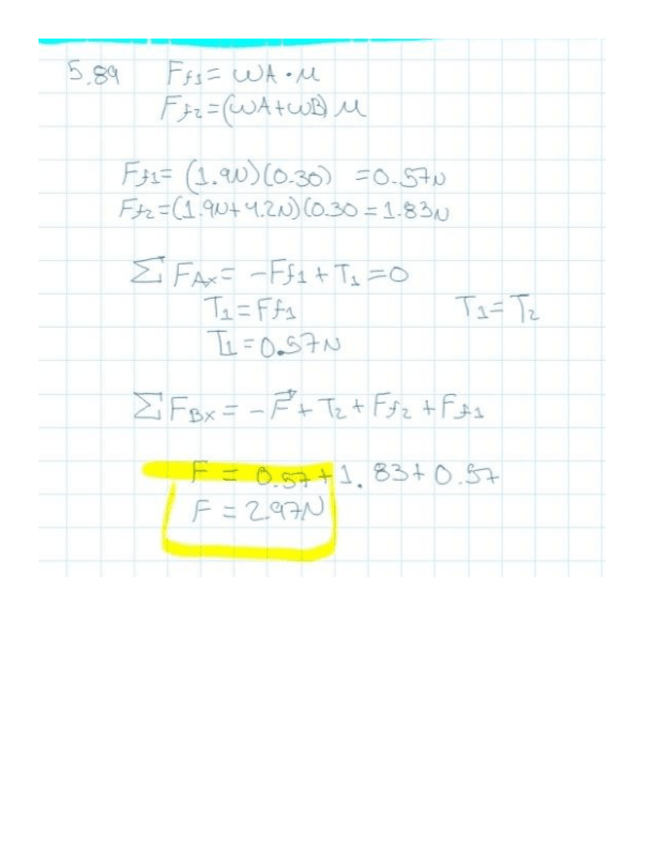 5.89 Ff1 = WA · M
Ff2 = (WA + WB) M
Ff1 = (1.9N)(0.30) = 0.57N
Ff2 = (1.9N + 4.2N)(0.30 = 1.83N
Σ FAx = -Ff1 + T1 = 0
T1 = Ff1 T1 = T2
T1 = 0.57N
Σ FBx = -F⃗ + T2 + Ff2 + Ff1
F = 0.57 + 1.83 + 0.57
F = 2.97N